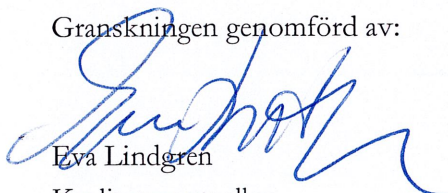 Granskningen genomförd av:
Eva Lindgren